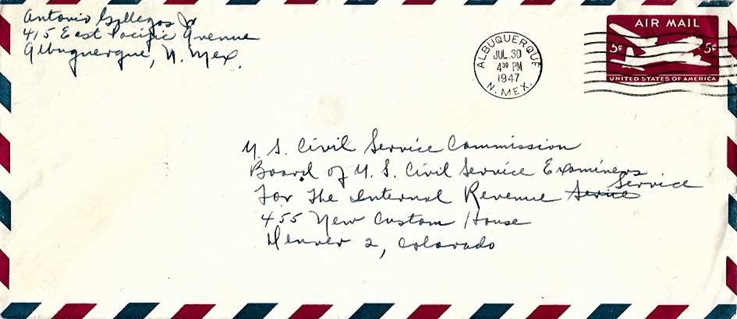 Antonio Gallegos Jr
415 East Pacific Avenue
Albuquerque, N. Mex.
ALBUQUERQUE
JUL 30
4 30 PM
1947
N. MEX.
AIR MAIL
5¢ 5¢
UNITED STATES OF AMERICA
U. S. Civil Service Commission
Board of U. S. Civil Service Examiners
For The Internal Revenue Service
455 New Custom House
Denver 2, Colorado